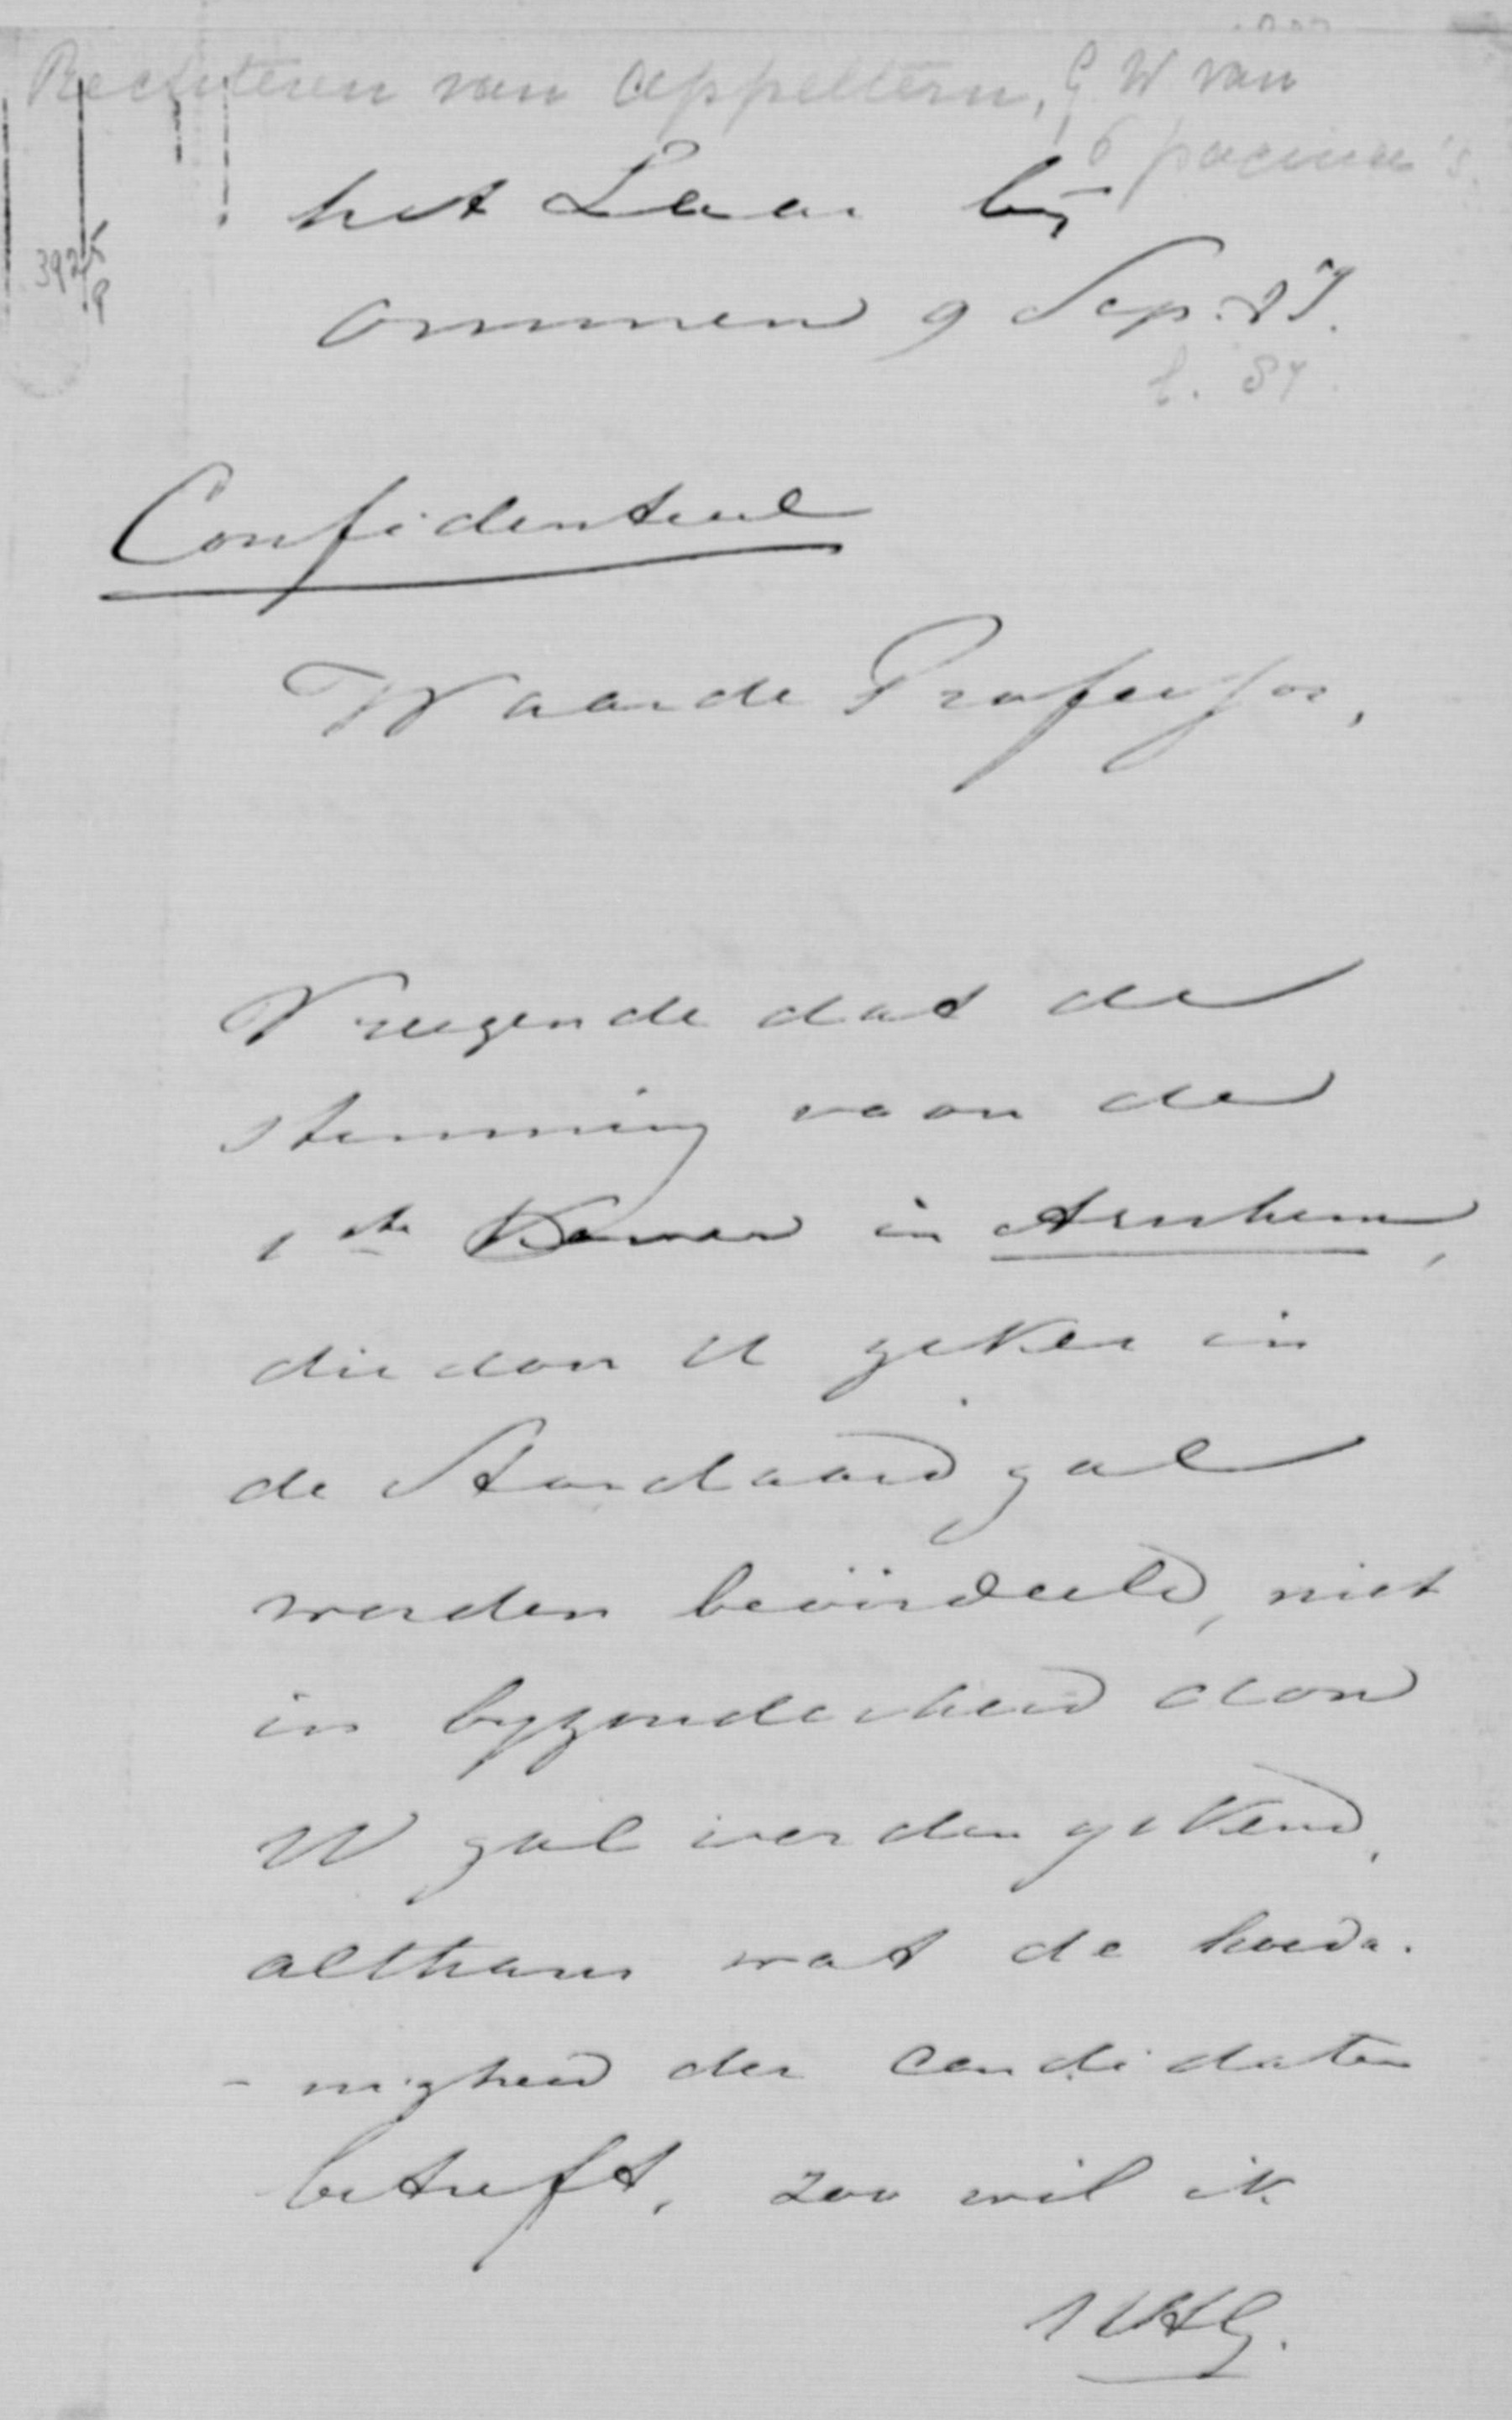 Rechteren van Appeltern, G W van
6 pagina's
het Laar bij
Ommen 9 Sep. 87.
b. 87.
Confidentieel
Waarde Professor,
Vreezende dat de
stemming voor de
1ste Kamer in Arnhem,
die door U zeker in
de Standaard zal
worden beöordeeld, niet
in byzonderheid door
U zal worden gekend,
althans wat de hoeda-
-nigheid der Candidaten
betreft, zoo wil ik
UHG.